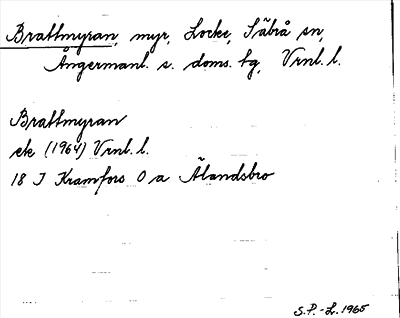 Brattmyran, myr, Locke, Säbrå sn,
Ångermanl. s. doms. tg, Vrnl. l.
Brattmyran
ek (1964) Vrnl. l.
18 I Kramfors O a Älandsbro
S.P.-L. 1965